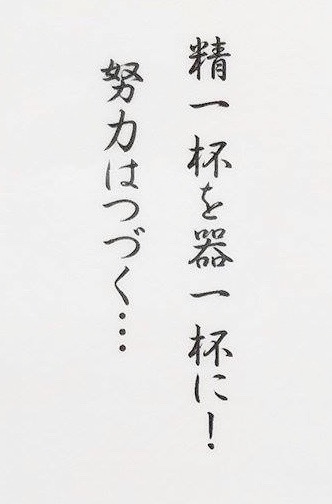 精一杯を器一杯に！
努力はつづく…